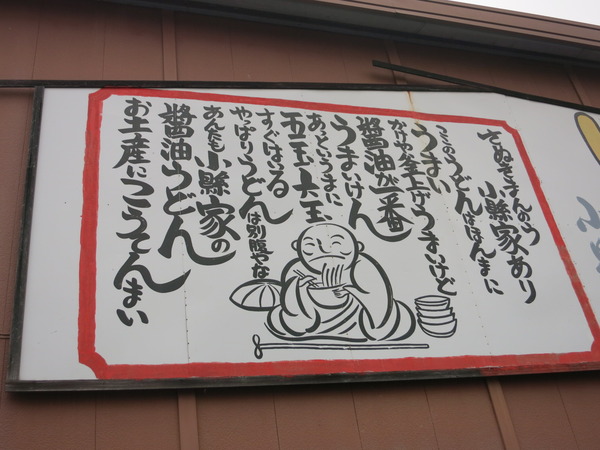 さぬきまんのう
小縣家あり
ここのうどんはほんまに
うまい
かけや釜上げうまいけど
醬油が一番
うまいけん
あっというまに
五玉大玉
すぐはいる
やっぱりうどんは別腹やな
あんたも小縣家の
醬油うどん
お土産にこうてんまい